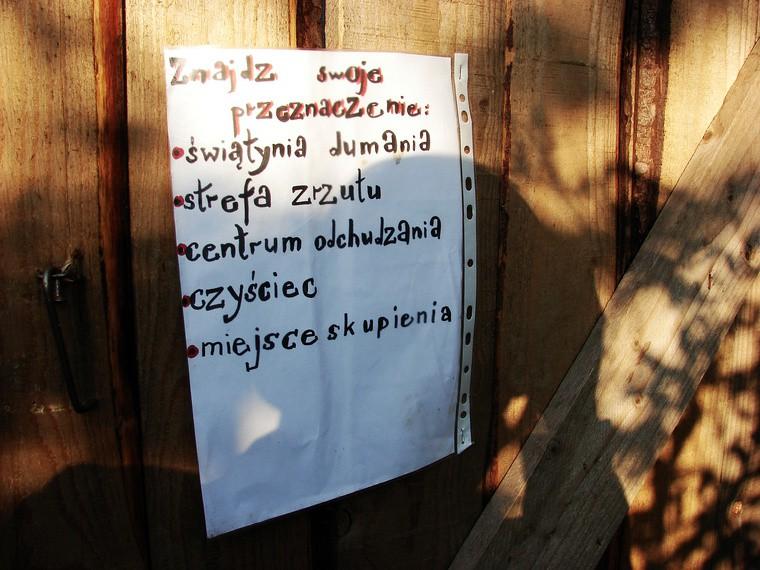 Znajdz swoje
przeznaczenie:
• świątynia dumania
• strefa zrzutu
• centrum odchudzania
• czyściec
• miejsce skupienia